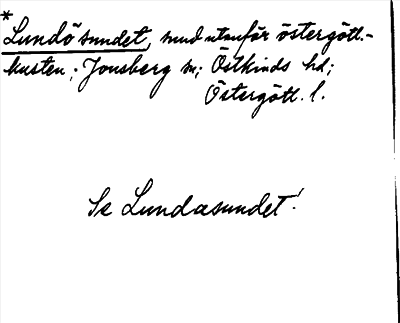 * Lundösundet, sund utanför östergötl.-
kusten; Jonsberg sn; Östkinds hd;
Östergötl. l.
Se Lundasundet!